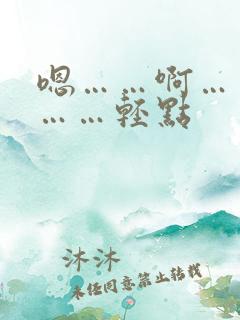 嗯……啊…
……輕點
沐沐
未經同意禁止轉載